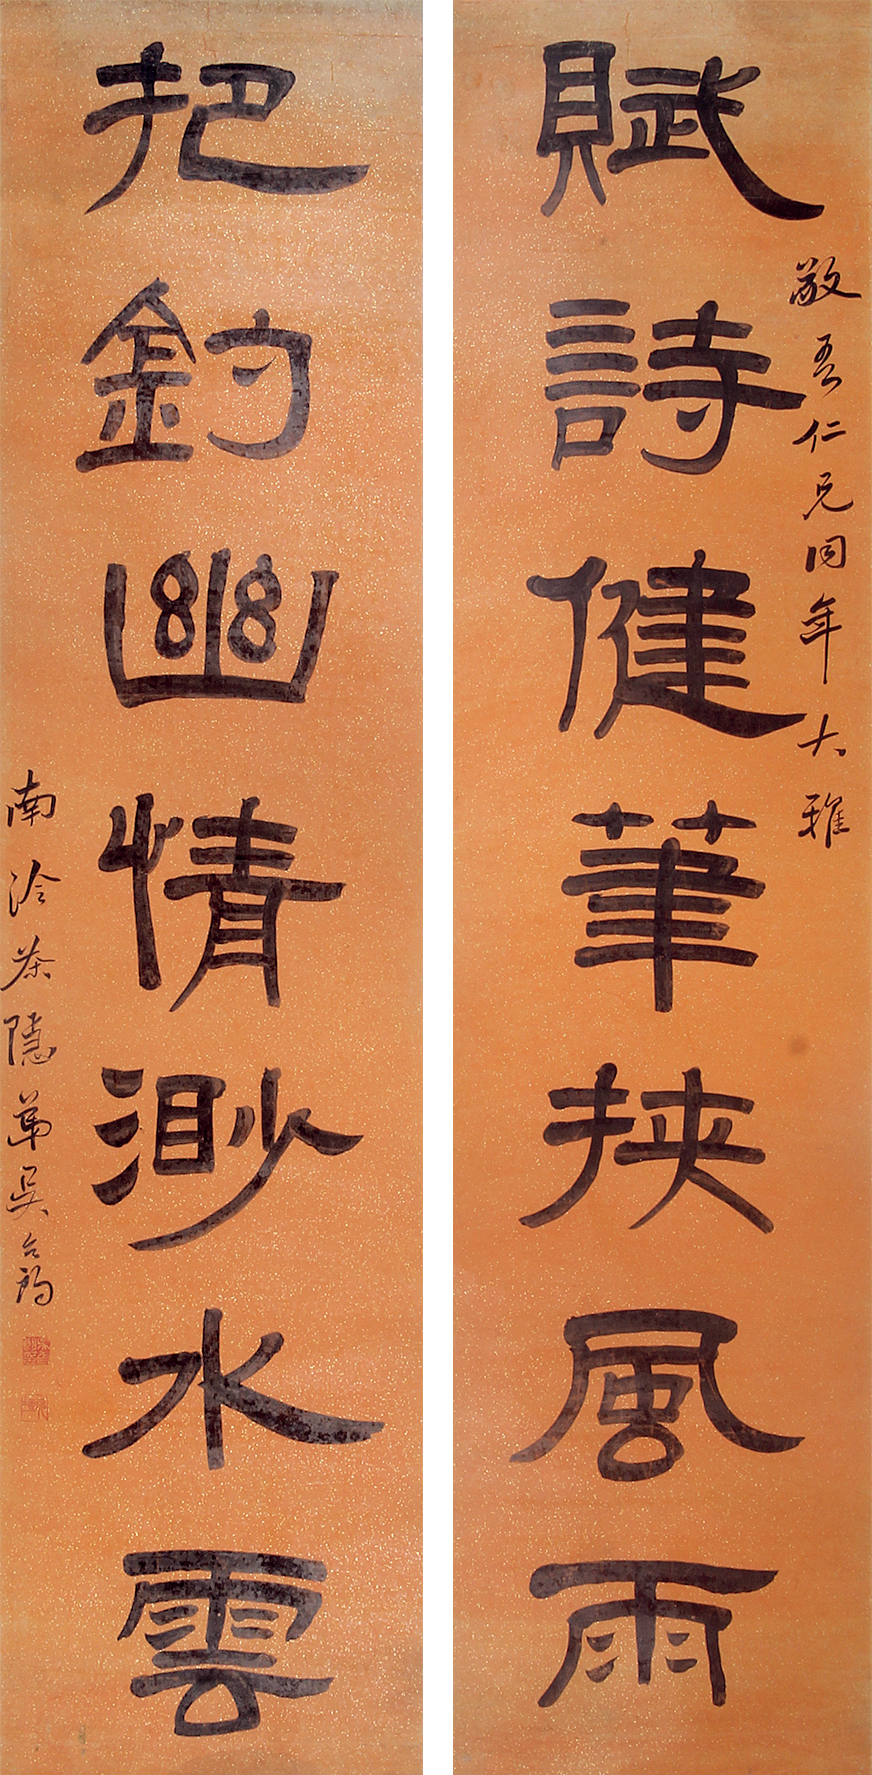 賦詩健筆挟風雨
敬吾仁兄同年大雅
把釣幽情渺水雲
南泠茶隱弟吳